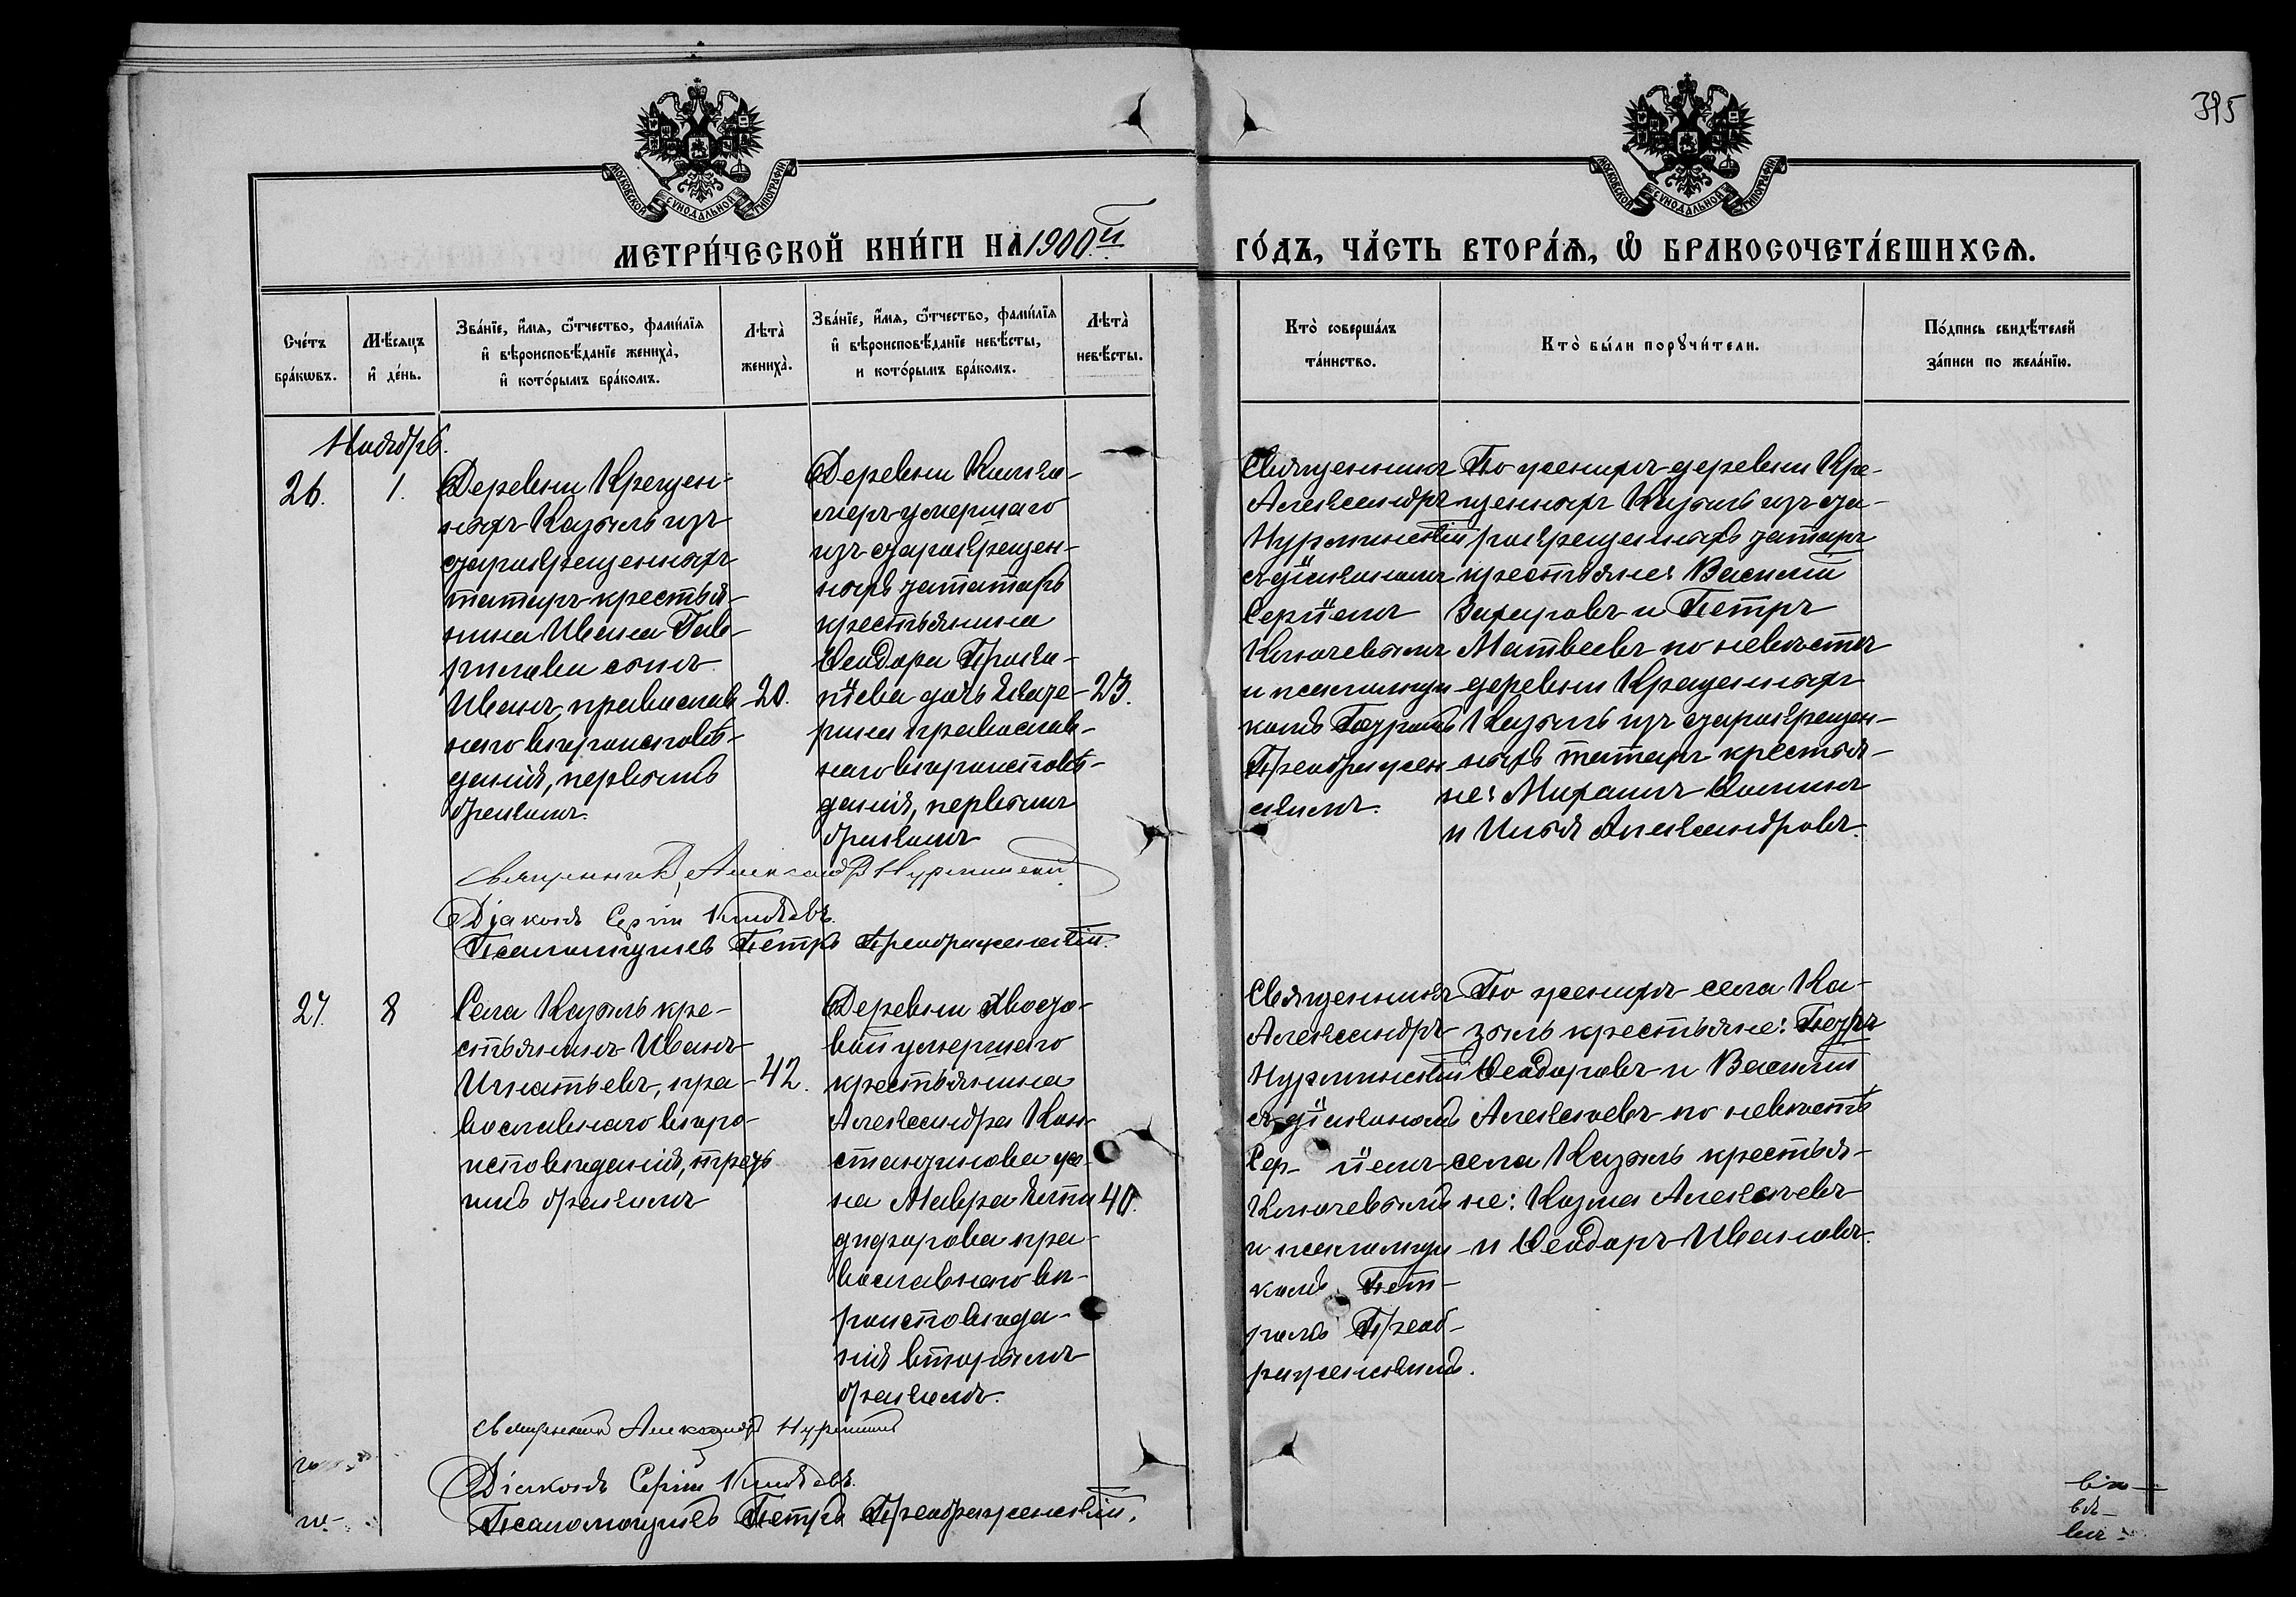 395
МОСКОВСКОЙ СУНОДАЛЬНОЙ ТИПОГРАФІИ
МОСКОВСКОЙ СУНОДАЛЬНОЙ ТИПОГРАФІИ
МЕТРИ́ЧЕСКОЙ КНИ́ГИ НА 1900й
ГО́ДЪ, ЧА́СТЬ ВТОРА́Ѧ, Ѽ БРАКОСОЧЕТА́ВШИХСѦ.
Сче́тъ
бра́кѡвъ.
Мѣ́сѧцъ
и҆ де́нь.
Зва́нїе, и҆́мѧ, ѻ҆́тчество, фами́лїѧ
и҆ вѣроисповѣ́данїе жениха̀,
и҆ кото́рымъ бра́комъ.
Лѣта̀
жениха̀.
Зва́нїе, и҆́мѧ, ѻ҆́тчество, фами́лїѧ
и҆ вѣроисповѣ́данїе невѣ́сты,
и кото́рымъ бра́комъ.
Лѣта̀
невѣ́сты.
Кто̀ соверша́лъ
та́инство.
Кто̀ бы́ли порꙋчи́тели.
По́дпись свидѣ́телей
за́писи по жела́нїю.
Ноябрь.
26.
1.
Деревни Крещен-
ныхъ Казыль изъ
старокрещенныхъ
татаръ крестья-
нина Ивана Гав-
рилова сынъ
Иванъ, православ-
наго вѣроисповѣ-
данія, первымъ
бракомъ.
20.
Деревни
умершаго
изъ старокрещен-
ныхъ татаръ
крестьянина
Ѳеодора Проко-
піева дочь Екате-
рина православ-
наго вѣроисповѣ-
данія, первымъ
бракомъ
23.
Священникъ
Александръ
Нурминскій
съ діакономъ
Сергіемъ
Ключевымъ
и псаломщи-
комъ Петромъ
Преображен-
скимъ.
По женихѣ деревни Кре-
щенныхъ Казыль изъ ста-
рокрещенныхъ татаръ
крестьяне: Василій
Захаровъ и Петръ
Матвеевъ по невѣстѣ
деревни Крещенныхъ
Казыль изъ старокрещен-
ныхъ татаръ крестья-
не: Михаилъ
и Илья Александровъ.
Священникъ Александръ Нурминскій
Діаконъ Сергій
Псаломщикъ Петръ Преображенскій.
27.
8
Села Казыль кре-
стьянинъ Иванъ
Игнатьевъ, пра-
вославнаго вѣро-
исповѣданія, треть-
имъ бракомъ
42.
Деревни Хвосто-
вой умершаго
крестьянина
Александра Кон-
стантинова же-
на Мавра
православнаго вѣ-
роисповѣда-
нія вторымъ
бракомъ.
40.
Священникъ
Александръ
Нурминскій
съ діакономъ
Сергіемъ
Ключевымъ
и псаломщи-
комъ Пет-
ромъ Преоб-
раженскимъ.
По женихѣ села Ка-
зыль крестьяне: Петръ
Ѳеодоровъ и Василій
Алексѣевъ по невѣстѣ
села Казыль крестья-
не: Козма Алексѣевъ
и Ѳеодоръ Ивановъ.
Священникъ Александръ Нурминскій
Діаконъ Сергій
Псаломщикъ Петръ Преображенскій.